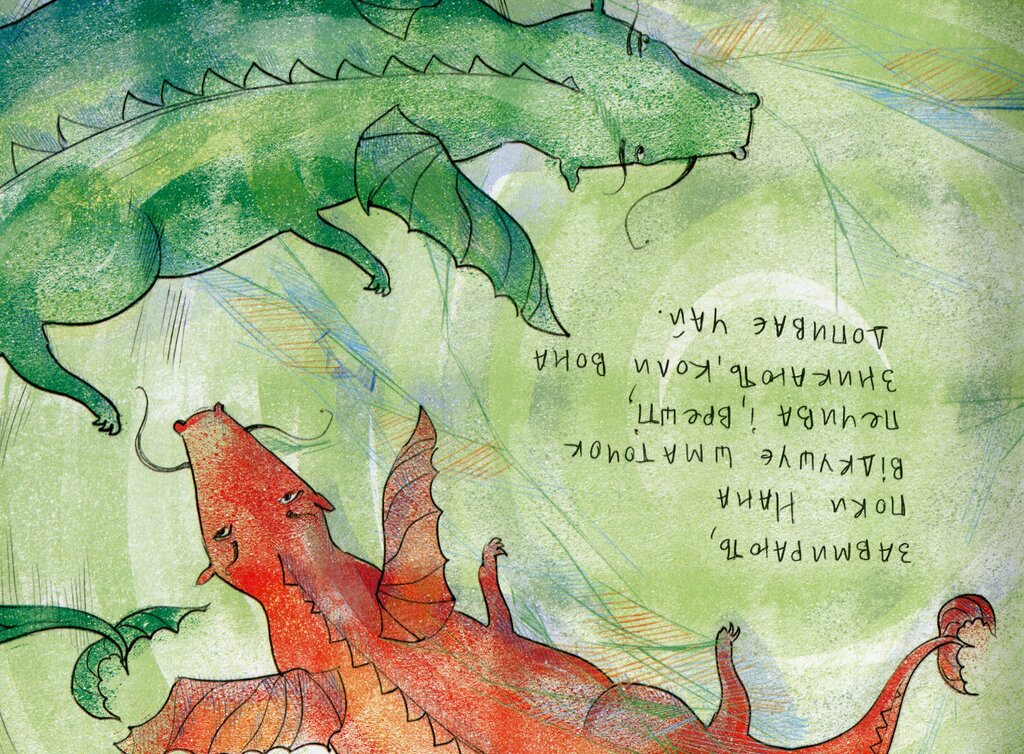 ЗАВМИРАЮТЬ,
ПОКИ НАНА
ВІДКУШУЄ ШМАТОЧОК
ПЕЧИВА І, ВРЕШТІ,
ЗНИКАЮТЬ, КОЛИ ВОНА
ДОПИВАЄ ЧАЙ.